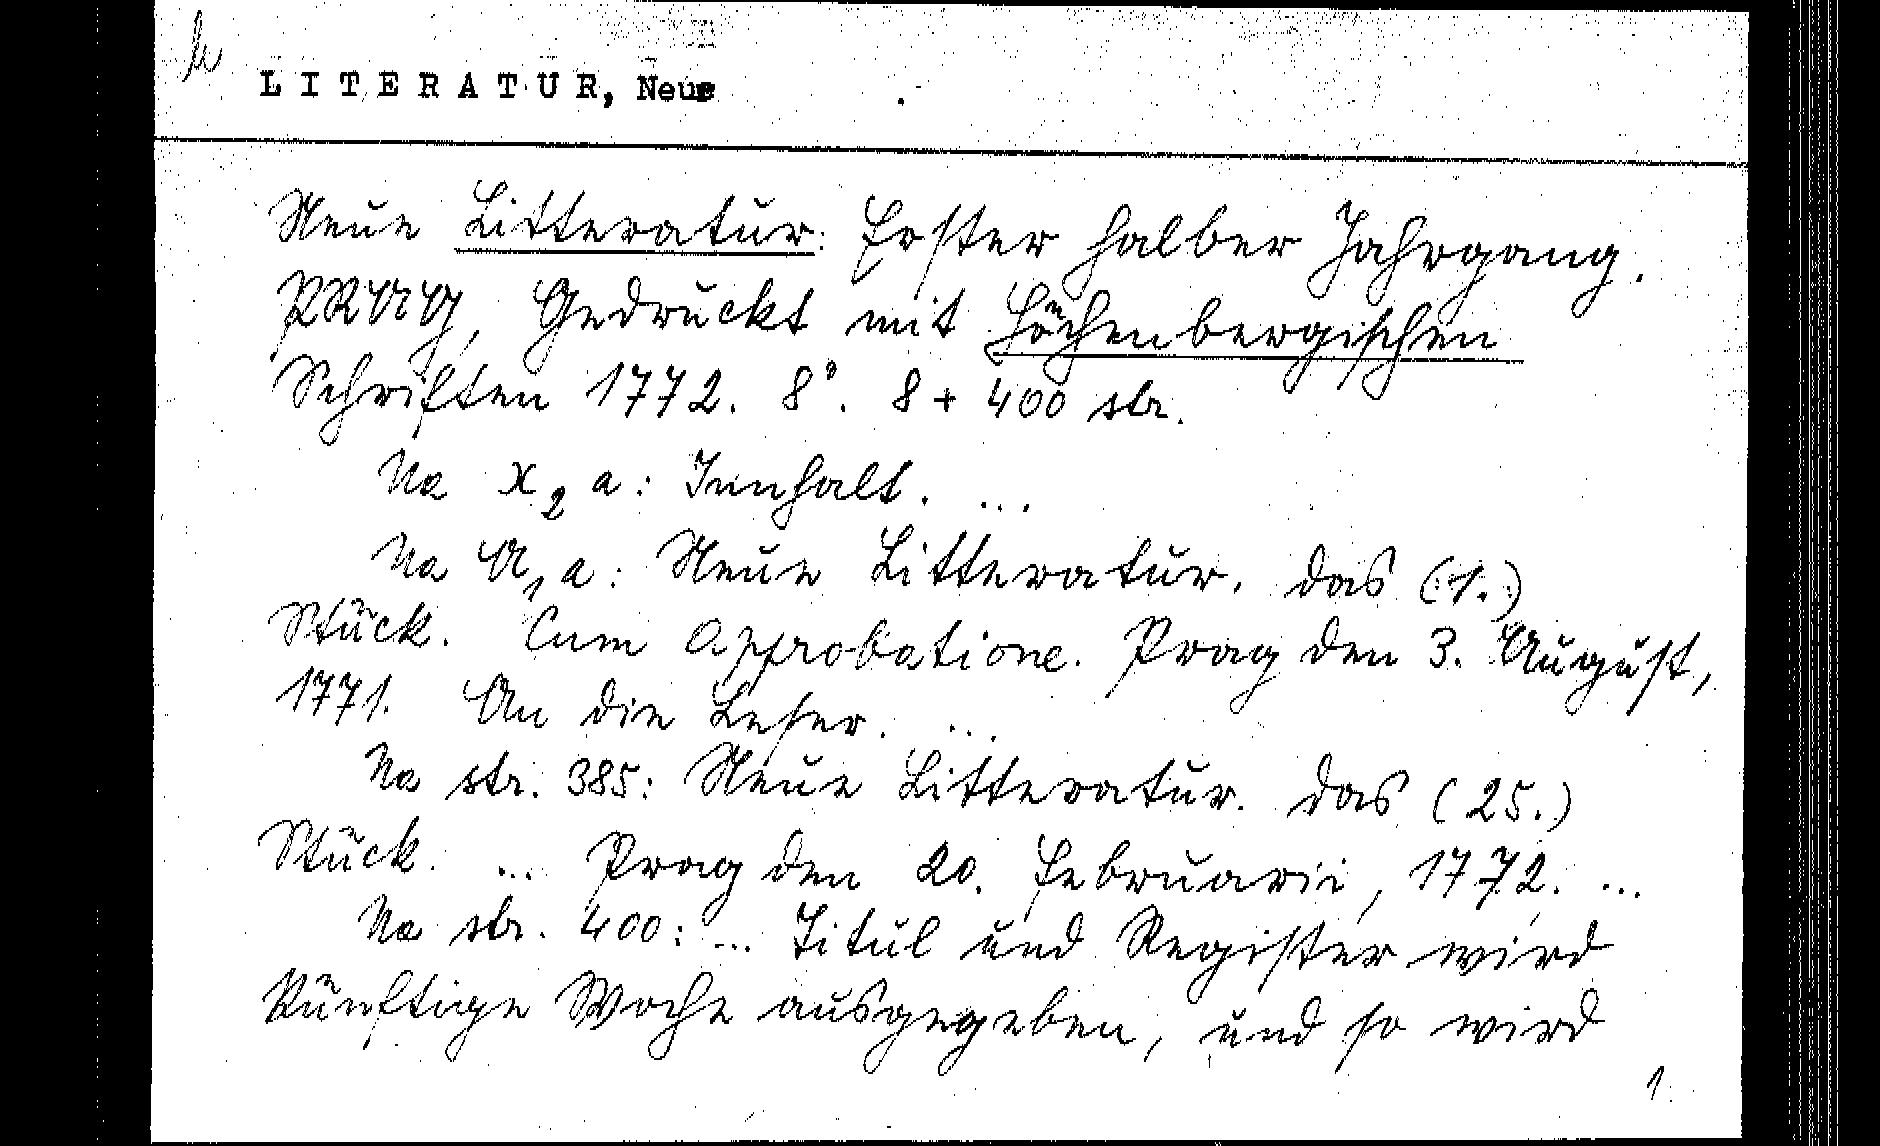 LITERATUR, Neue
Neue Litteratur. Erster halber Jahrgang.
PRAG, Gedruckt mit Höchenbergischen
Schriften 1772. 8°. 8 + 400 str.
Na X2 a: Innhalt. ...
Na A1 a: Neue Litteratur. Das (1.)
Stück. Cum Approbatione. Prag den 3. August,
1771. An die Leser. ...
Na str. 385: Neue Litteratur. Das (25.)
Stück. ... Prag den 20. Februarii, 1772. ...
Na str. 400: ... Titul und Register wird
künftige Woche ausgegeben, und so wird
1.